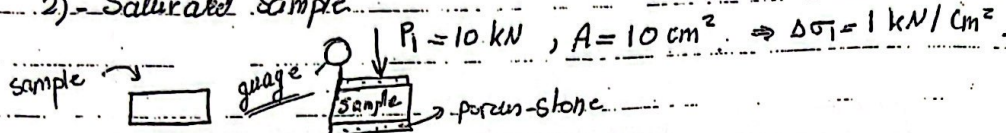 2)- Saturated sample
P₁ = 10 kN , A = 10 cm² ⇒ Δσ₁ = 1 kN/cm².
sample
guage
sample
porous-stone